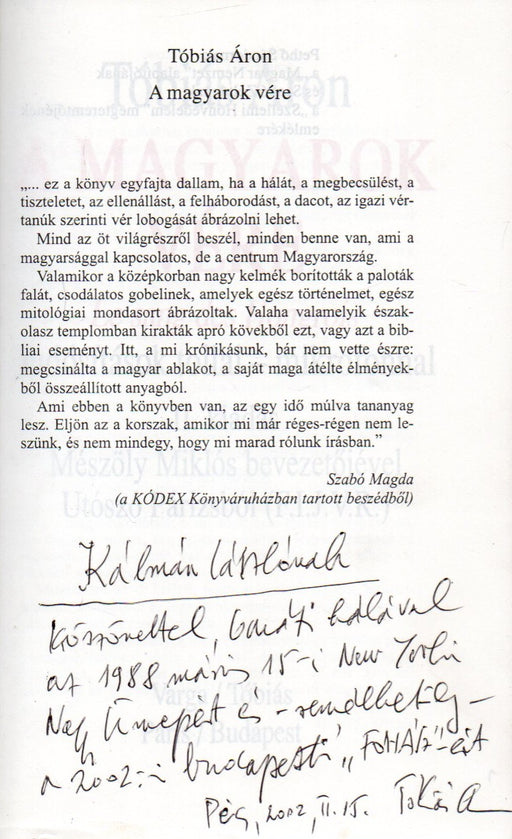 Tóbiás Áron
A magyarok vére
„... ez a könyv egyfajta dallam, ha a hálát, a megbecsülést, a
tiszteletet, az ellenállást, a felháborodást, a dacot, az igazi vér-
tanúk szerinti vér lobogását ábrázolni lehet.
Mind az öt világrészről beszél, minden benne van, ami a
magyarsággal kapcsolatos, de a centrum Magyarország.
Valamikor a középkorban nagy kelmék borították a paloták
falát, csodálatos gobelinek, amelyek egész történelmet, egész
mitológiai mondasort ábrázoltak. Valaha valamelyik észak-
olasz templomban kirakták apró kövekből ezt, vagy azt a bib-
liai eseményt. Itt, a mi krónikásunk, bár nem vette észre:
megcsinálta a magyar ablakot, a saját maga átélte élmények-
ből összeállított anyagból.
Ami ebben a könyvben van, az egy idő múlva tananyag
lesz. Eljön az a korszak, amikor mi már réges-régen nem le-
szünk, és nem mindegy, hogy mi marad rólunk írásban.”
Szabó Magda
(a KÓDEX Könyváruházban tartott beszédből)
Kálmán Lászlónak
Köszönettel, baráti hálával
az 1988 március 15-i New Yorki
Nagy Ünnepért és – remélhetőleg –
a 2002-i budapesti
2002, II. 15.
Mészöly Miklós bevezetőjével
Varga / Tóbiás
/ Budapest